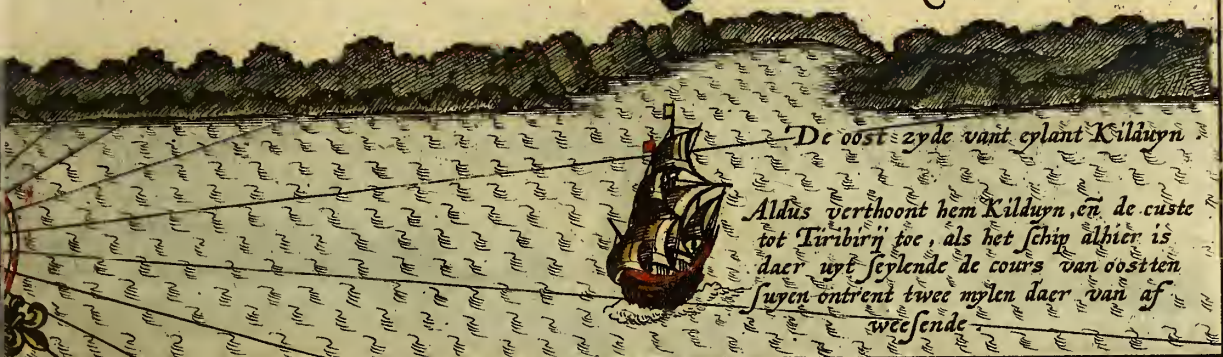 De oost zyde vant eylant Kilduyn.
Aldus verthoont hem Kilduyn, en̄ de custe
tot Tiribirij toe, als het ſchip alhier is
daer uyt ſeylende de cours van oostten
ſuyen ontrent twee mylen daer van af
weeſende.